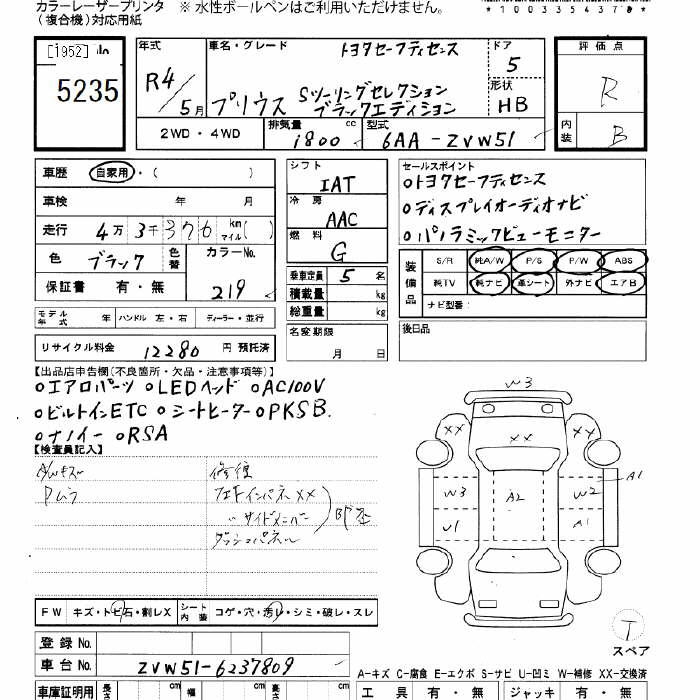 カラーレーザープリンタ ※ 水性ボールペンはご利用いただけません。
(複合機)対応用紙
*1003354378*
[1952]
5235
年式 R4/5月
車名・グレード トヨタセーフティセンス
プリウス Sツーリングセレクション
ブラックエディション
ドア 5
形状 HB
評価点 R
内装 B
2WD・4WD
排気量 1800 cc
型式 6AA-ZVW51
車歴 自家用・( )
車検 年 月
走行 4万3千376 km マイル( )
色 ブラック 色替
カラーNo. 219
保証書 有・無
シフト IAT
冷房 AAC
燃料 G
乗車定員 5 名
積載量 kg
総重量 kg
名変期限 月 日
セールスポイント
○トヨタセーフティセンス
○ディスプレイオーディオナビ
○パノラミックビューモニター
装備品
S/R 純A/W P/S P/W ABS
純TV 純ナビ 革シート 外ナビ エアB
ナビ型番:
モデル年式 年 ハンドル 左・右 ディーラー・並行
後日品
リサイクル料金 12280 円 預託済
【出品店申告欄(不良箇所・欠品・注意事項等)】
○エアロパーツ ○LEDヘッド ○AC100V
○ビルトインETC ○シートヒーター ○PKSB.
○ナノイー ○RSA
【検査員記入】
修復
インパネXX
サイドメンバー
ダッシュパネル
W3
XX XX XX
W3 A2 W2 A1
U1 A1
T
スペア
FW キズ・トビ石・割レX
シート内装 コゲ・穴・汚レ・シミ・破レ・スレ
登録 No.
車台 No. ZVW51-6237809
A-キズ C-腐食 E-エクボ S-サビ U-凹ミ W-補修 XX-交換済
車庫証明用 長さ cm 幅 cm 高さ cm
工具 有・無 ジャッキ 有・無